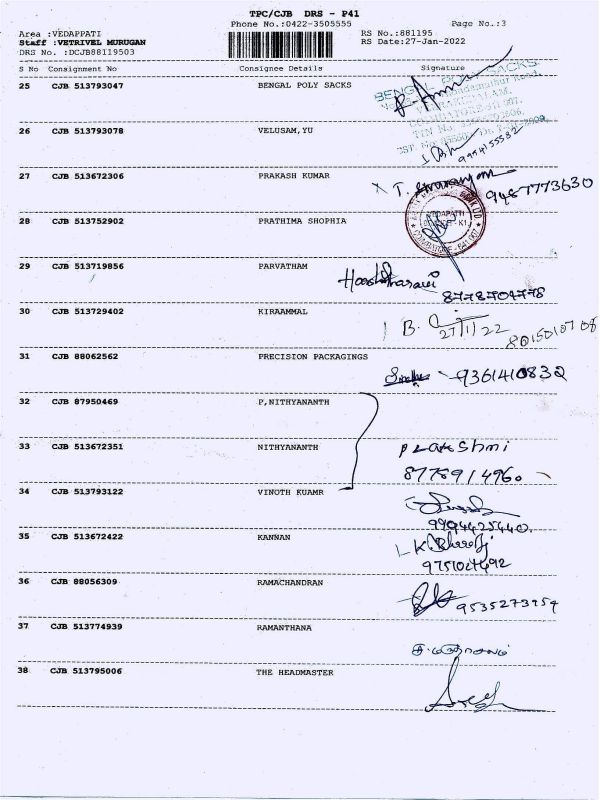 TPC/CJB DRS - P41
Phone No.:0422-3505555
Page No.:3
Area :VEDAPPATI
Staff :VETRIVEL MURUGAN
DRS No. :DCJB88I19503
RS No.:881195
RS Date:27-Jan-2022
S No Consignment No Consignee Details Signature
25 CJB 513793047 BENGAL POLY SACKS
BENGAL POLY SACKS
26 CJB 513793078 VELUSAM,YU
9994155582
27 CJB 513672306 PRAKASH KUMAR
9487773630
28 CJB 513752902 PRATHIMA SHOPHIA
VEDAPATTI
29 CJB 513719856 PARVATHAM
8778704778
30 CJB 513729402 KIRAAMMAL
27/1/22 8015010708
31 CJB 88062562 PRECISION PACKAGINGS
9361410832
32 CJB 87950469 P,NITHYANANTH
33 CJB 513672351 NITHYANANTH
P Lakshmi
8778914960
34 CJB 513793122 VINOTH KUAMR
9994425440
35 CJB 513672422 KANNAN
36 CJB 88056309 RAMACHANDRAN
9535273954
37 CJB 513774939 RAMANTHANA
38 CJB 513795006 THE HEADMASTER